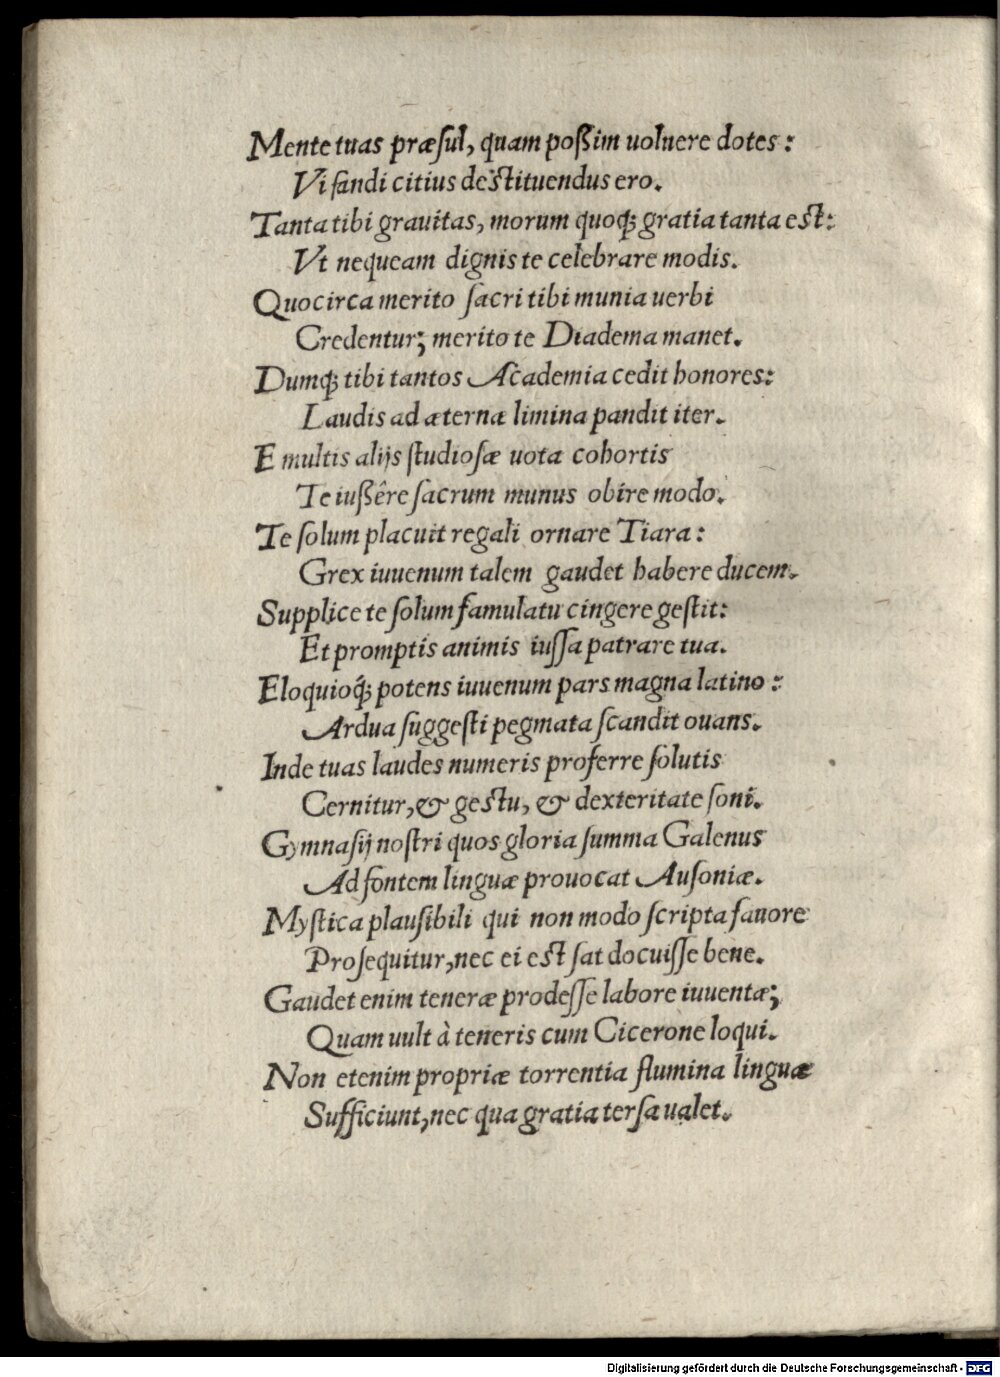 Mente tuas præſul, quam poßim uoluere dotes:
Vi fandi citius deſtituendus ero.
Tanta tibi grauitas, morum quoq; gratia tanta eſt:
Vt nequeam dignis te celebrare modis.
Quocirca merito ſacri tibi munia uerbi
Credentur; merito te Diadema manet.
Dumq; tibi tantos Academia cedit honores:
Laudis ad æternæ limina pandit iter.
E multis alijs ſtudioſæ uota cohortis
Te iußêre ſacrum munus obire modo.
Te ſolum placuit regali ornare Tiara:
Grex iuuenum talem gaudet habere ducem.
Supplice te ſolum famulatu cingere geſtit:
Et promptis animis iuſſa patrare tua.
Eloquioq́; potens iuuenum pars magna latino:
Ardua ſuggeſti pegmata ſcandit ouans.
Inde tuas laudes numeris proferre ſolutis
Cernitur, & geſtu, & dexteritate ſoni.
Gymnaſij noſtri quos gloria ſumma Galenus
Ad fontem linguæ prouocat Auſoniæ.
Myſtica plauſibili qui non modo ſcripta fauore
Proſequitur, nec ei eſt ſat docuiſſe bene.
Gaudet enim teneræ prodeſſe labore iuuentæ;
Quam uult à teneris cum Cicerone loqui.
Non etenim propriæ torrentia flumina linguæ
Sufficiunt, nec qua gratia terſa ualet.
Digitalisierung gefördert durch die Deutsche Forschungsgemeinschaft - DFG